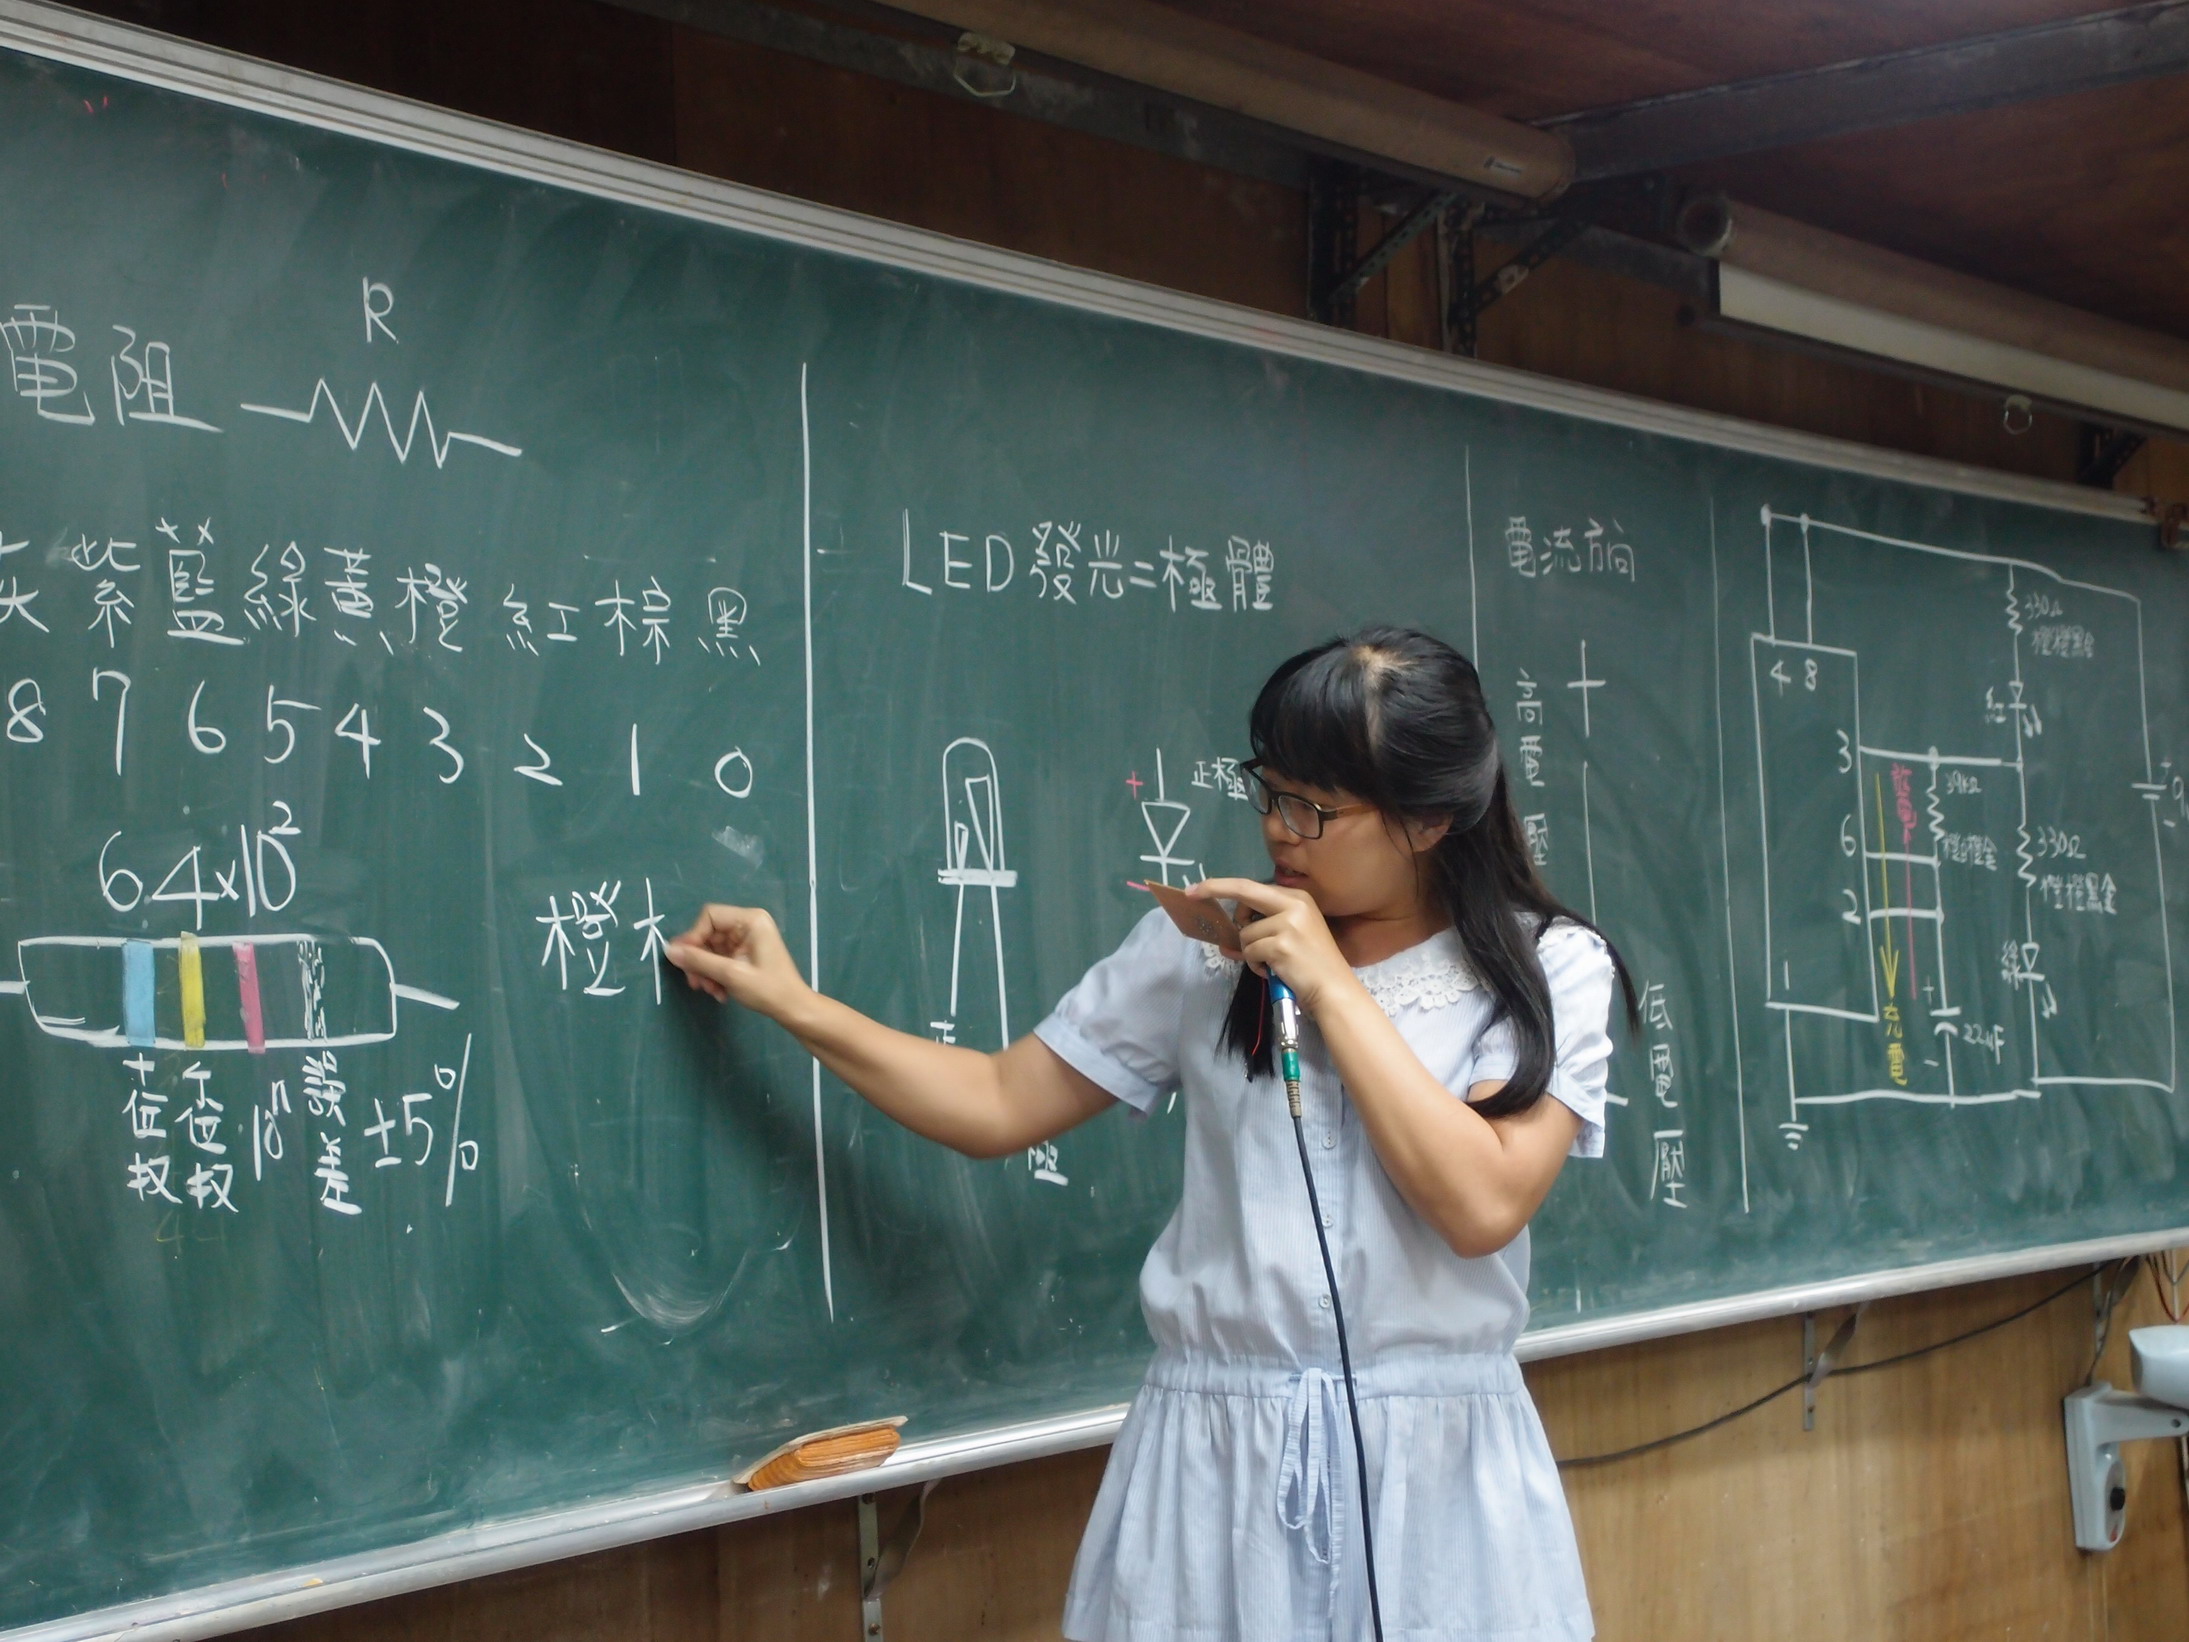 電阻
R
紫藍綠黃橙紅棕黑
8 7 6 5 4 3 2 1 0
64×10²
十位权 个位权 10ⁿ 誤差 ±5%
橙木
LED發光二極體
+
正極
正
極
電流方向
+
高電壓
低電壓
4 8
3
6
2
1
330Ω
橙橙黑金
紅
放電
39kΩ
330Ω
橙橙黑金
綠
充電
+
22uF
-
+
9
-